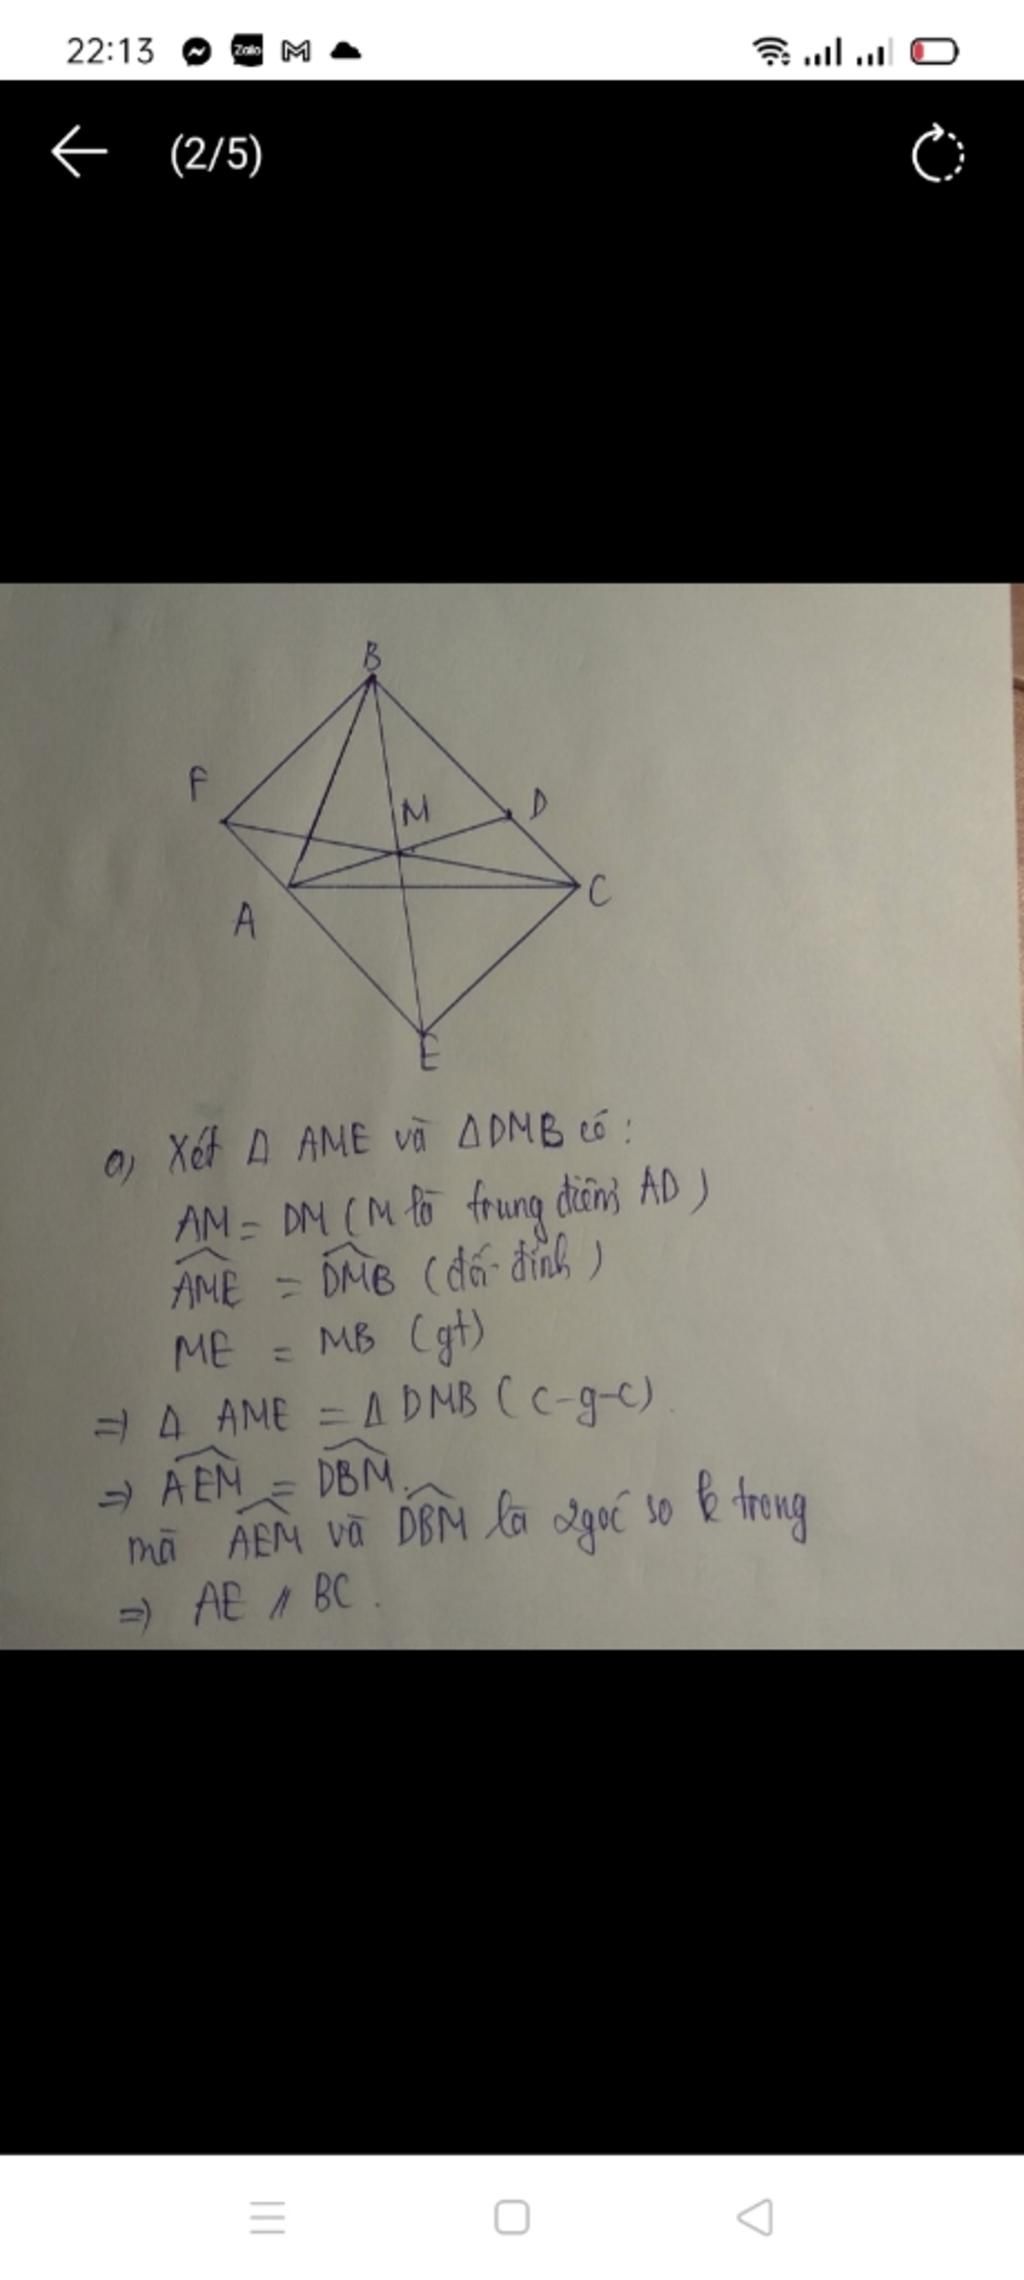 22:13 Zalo
(2/5)
B
F
M D
A C
E
a, Xét Δ AME và ΔDMB có :
AM = DM ( M là trung điểm AD )
AME = DMB ( đối đỉnh )
ME = MB ( gt )
=> Δ AME = Δ DMB ( c-g-c ) .
=> AEM = DBM .
mà AEM và DBM là 2góc so le trong
=> AE // BC .